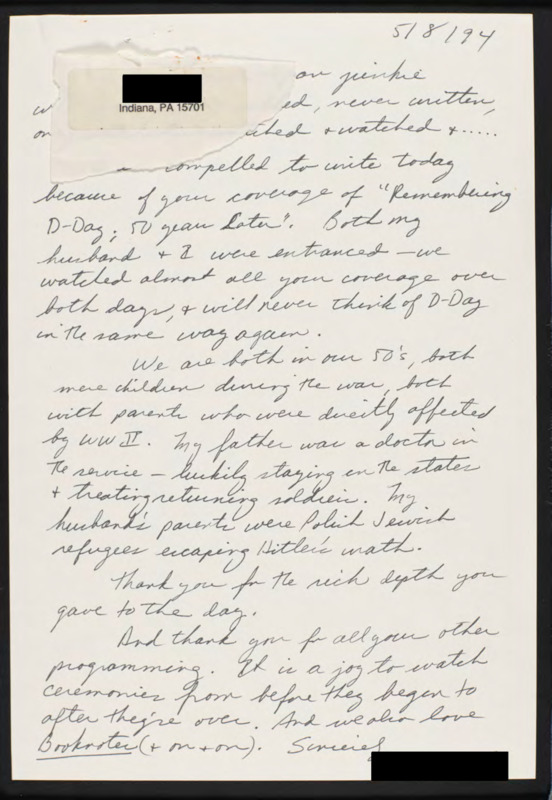 5/8/94
an junkie
Indiana, PA 15701
w ed, never written,
on ched & watched & .....
compelled to write today
because of your coverage of "Remembering
D-Day; 50 years Later". Both my
husband & I were entranced - we
watched almost all your coverage over
both days, & will never think of D-Day
in the same way again.
We are both in our 50's, both
mere children during the war, both
with parents who were directly affected
by WW II. My father was a doctor in
the service - luckily staying in the states
& treating returning soldiers. My
husband's parents were Polish Jewish
refugees escaping Hitler's wrath.
Thank you for the rich depth you
gave to the day.
And thank you for all your other
programming. It is a joy to watch
ceremonies from before they began to
after they're over. And we also love
Booknotes (& on & on). Sincerely